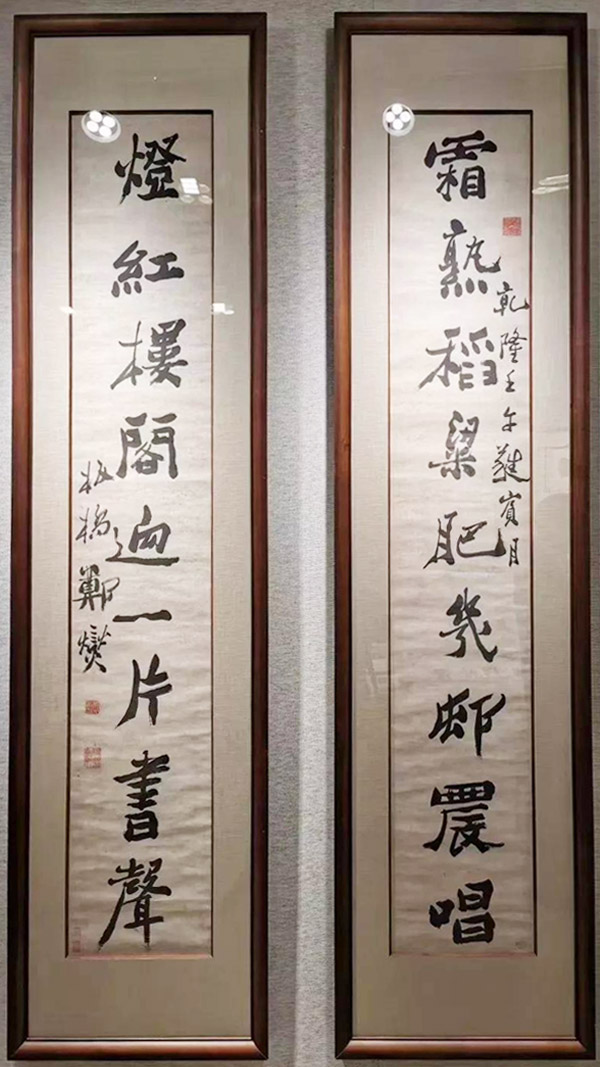 乾隆壬午蕤賓月
霜熟稻粱肥幾邨農唱
燈紅樓閣迥一片書聲
板橋鄭燮